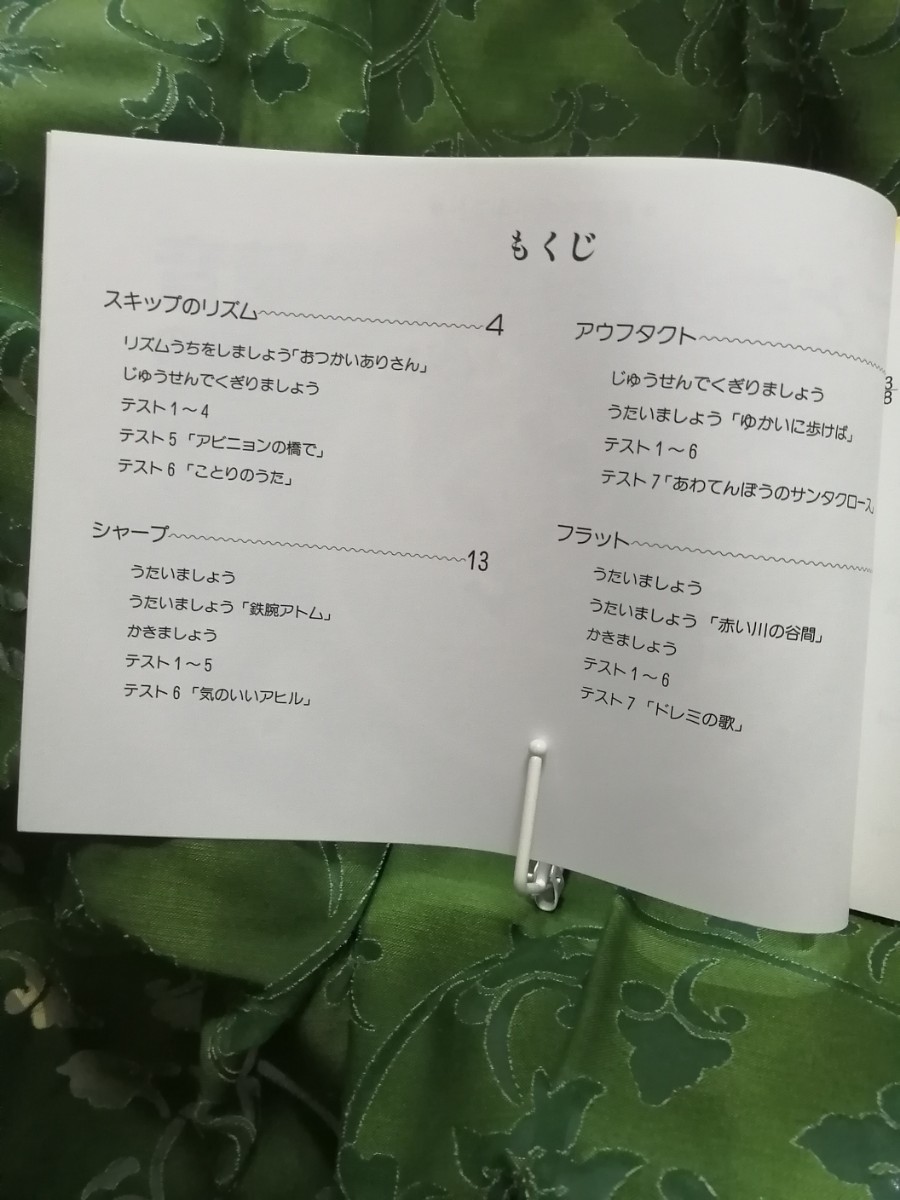 もくじ
スキップのリズム 4
リズムうちをしましょう「おつかいありさん」
じゅうせんでくぎりましょう
テスト1～4
テスト5「アビニョンの橋で」
テスト6「ことりのうた」
シャープ 13
うたいましょう
うたいましょう「鉄腕アトム」
かきましょう
テスト1～5
テスト6「気のいいアヒル」
アウフタクト
じゅうせんでくぎりましょう
うたいましょう「ゆかいに歩けば」
テスト1～6
テスト7「あわてんぼうのサンタクロース」
フラット
うたいましょう
うたいましょう「赤い川の谷間」
かきましょう
テスト1～6
テスト7「ドレミの歌」